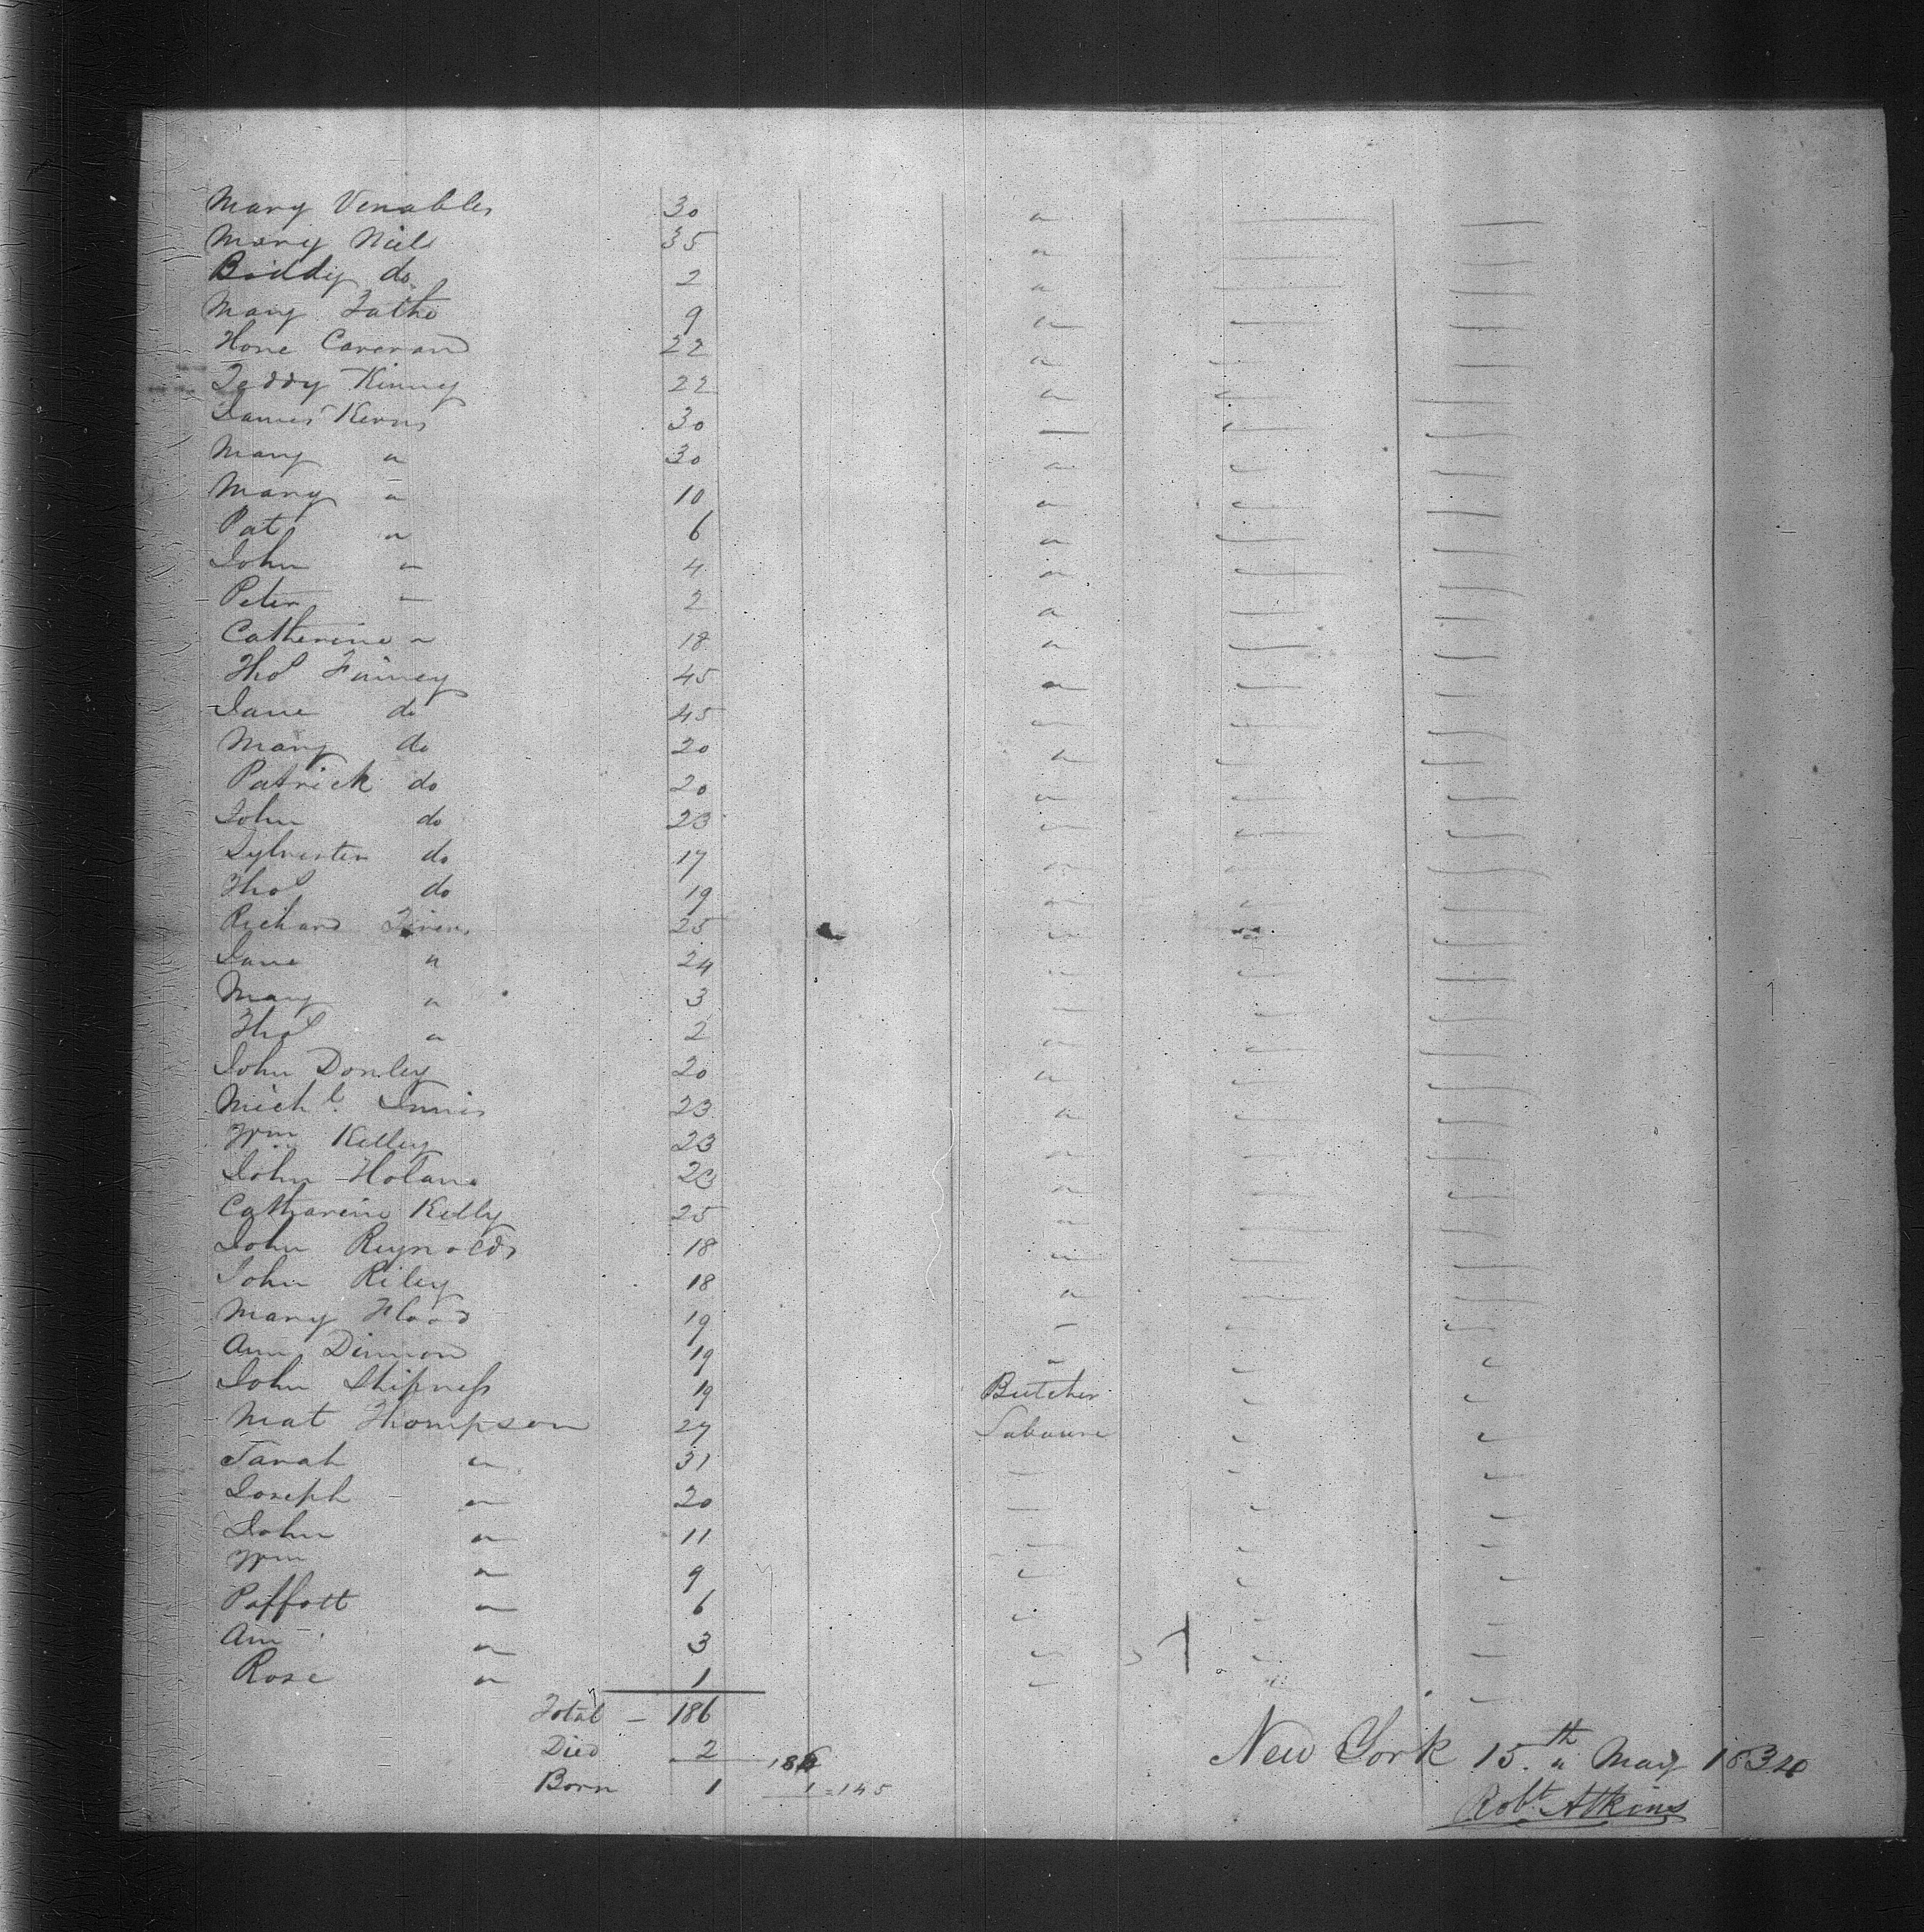 Mary Venables 30 "
Mary Niel 35 "
Biddy do. 2 "
Mary 9 "
Hone 22 "
Teddy Kinney 22 "
James Kerns 30 —
Mary " 30 "
Mary " 10 "
Pat " 6 "
John " 4 "
Peter " 2 "
Catherine " 18 "
Thos Finney 45 "
Jane do 45 "
Mary do 20 "
Patrick do 20 "
John do 23 "
Sylvester do 17 "
Thos do 19 "
Richard 25 "
Jane " 24 "
Mary " 3 "
Thos " 2 "
John Donley 20 "
Michl. Innis 23 "
Wm Kelley 23 "
John Holand 23 "
Catharine Kelly 25 "
John Reynolds 18 "
John Riley 18 "
Mary Flood 19 "
Ann Dinnon 19 "
John Shipness 19 Butcher "
Mat Thompson 27 "
Sarah " 31
Joseph " 20
John " 11
Wm " 9
Paffott " 6
Ann " 3
Rose " 1
Total — 186
Died 2 184
Born 1 1 = 185
New York 15th " May 1834
Robt. Atkins